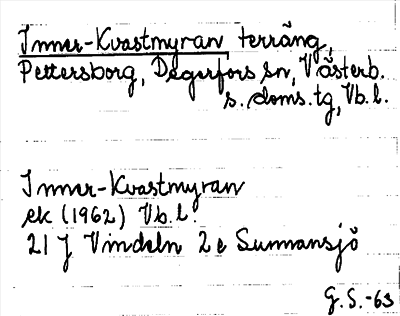 Inner-Kvastmyran terräng,
Pettersborg, Degerfors sn, Västerb.
s. doms.tg, Vb.l.
Inner-Kvastmyran
ek (1962) Vb.l.
21 J Vindeln 2e Sunnansjö
G.S.-63